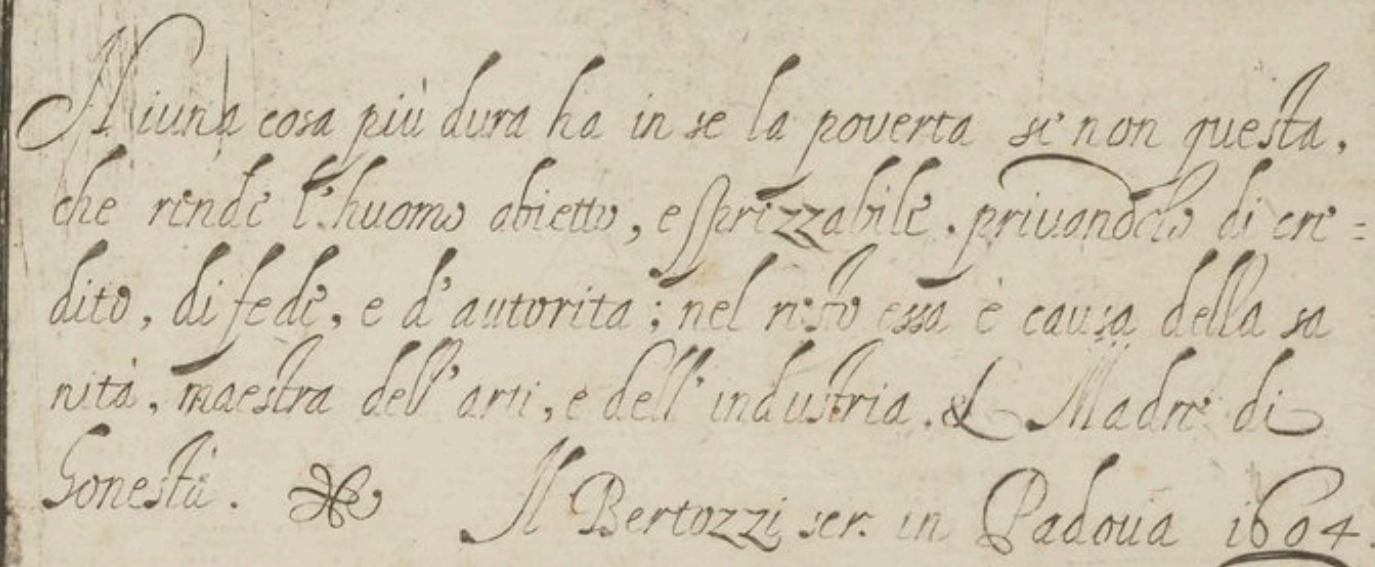 Niuna cosa più dura ha in se la poverta se non questa,
che rende l'huomo abietto, e sprezzabile. privandolo di cre=
dito, di fede, e d'autorita; nel resto essa è causa della sa
nità, maestra dell'arti, e dell'industria. & Madre di
honestà. Il Bertozzi scr. in Padoua 1604.